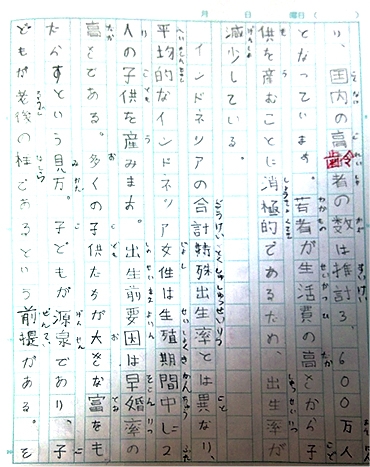 月 日 曜日( )
り、国内の高齢者の数は推計3600万人
となっています。若者が生活費の高さから子
供を産むことに消極的であるため、出生率が
減少している。
インドネシアの合計特殊出生率とは異なり、
平均的なインドネシア女性は生殖期間中に2
人の子供を産みます。出生前要因は早婚率の
高さである。多くの子供たちが大きな富をも
たらすという見方。子どもが源泉であり子
どもが老後の柱であるという前提がある。そ